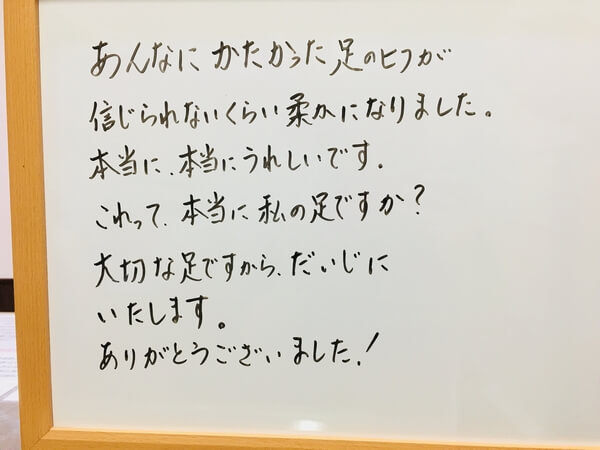 あんなに かたかった足のヒフが
信じられないくらい柔かになりました。
本当に、本当にうれしいです.
これって、本当に私の足ですか？
大切な足ですから、だいじに
いたします。
ありがとうございました！